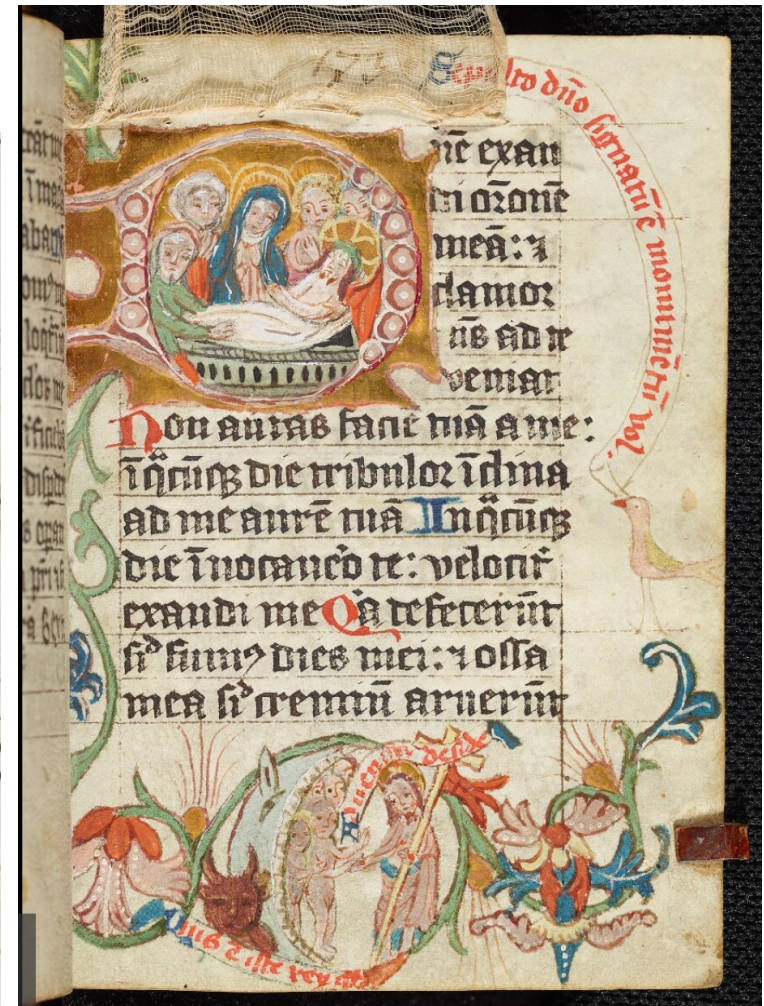 Sepulto dño signatū ē monumētū vol.
nē exau
di oꝛonē
meā: ⁊
clamoꝛ
ūs ad te
veniat
Non auertas faciē tuā a me:
ī q̄cūqꝫ die tribuloꝛ īclina
ad me aurē tuā In q̄cūqꝫ
die īuocauero te: velocit̄
exaudi me Qa defecerūt
sic̄ fumꝰ dies mei: ⁊ ossa
mea sic̄ cremiū aruerūt
Aduenisti deside
Quis ē iste rex glo